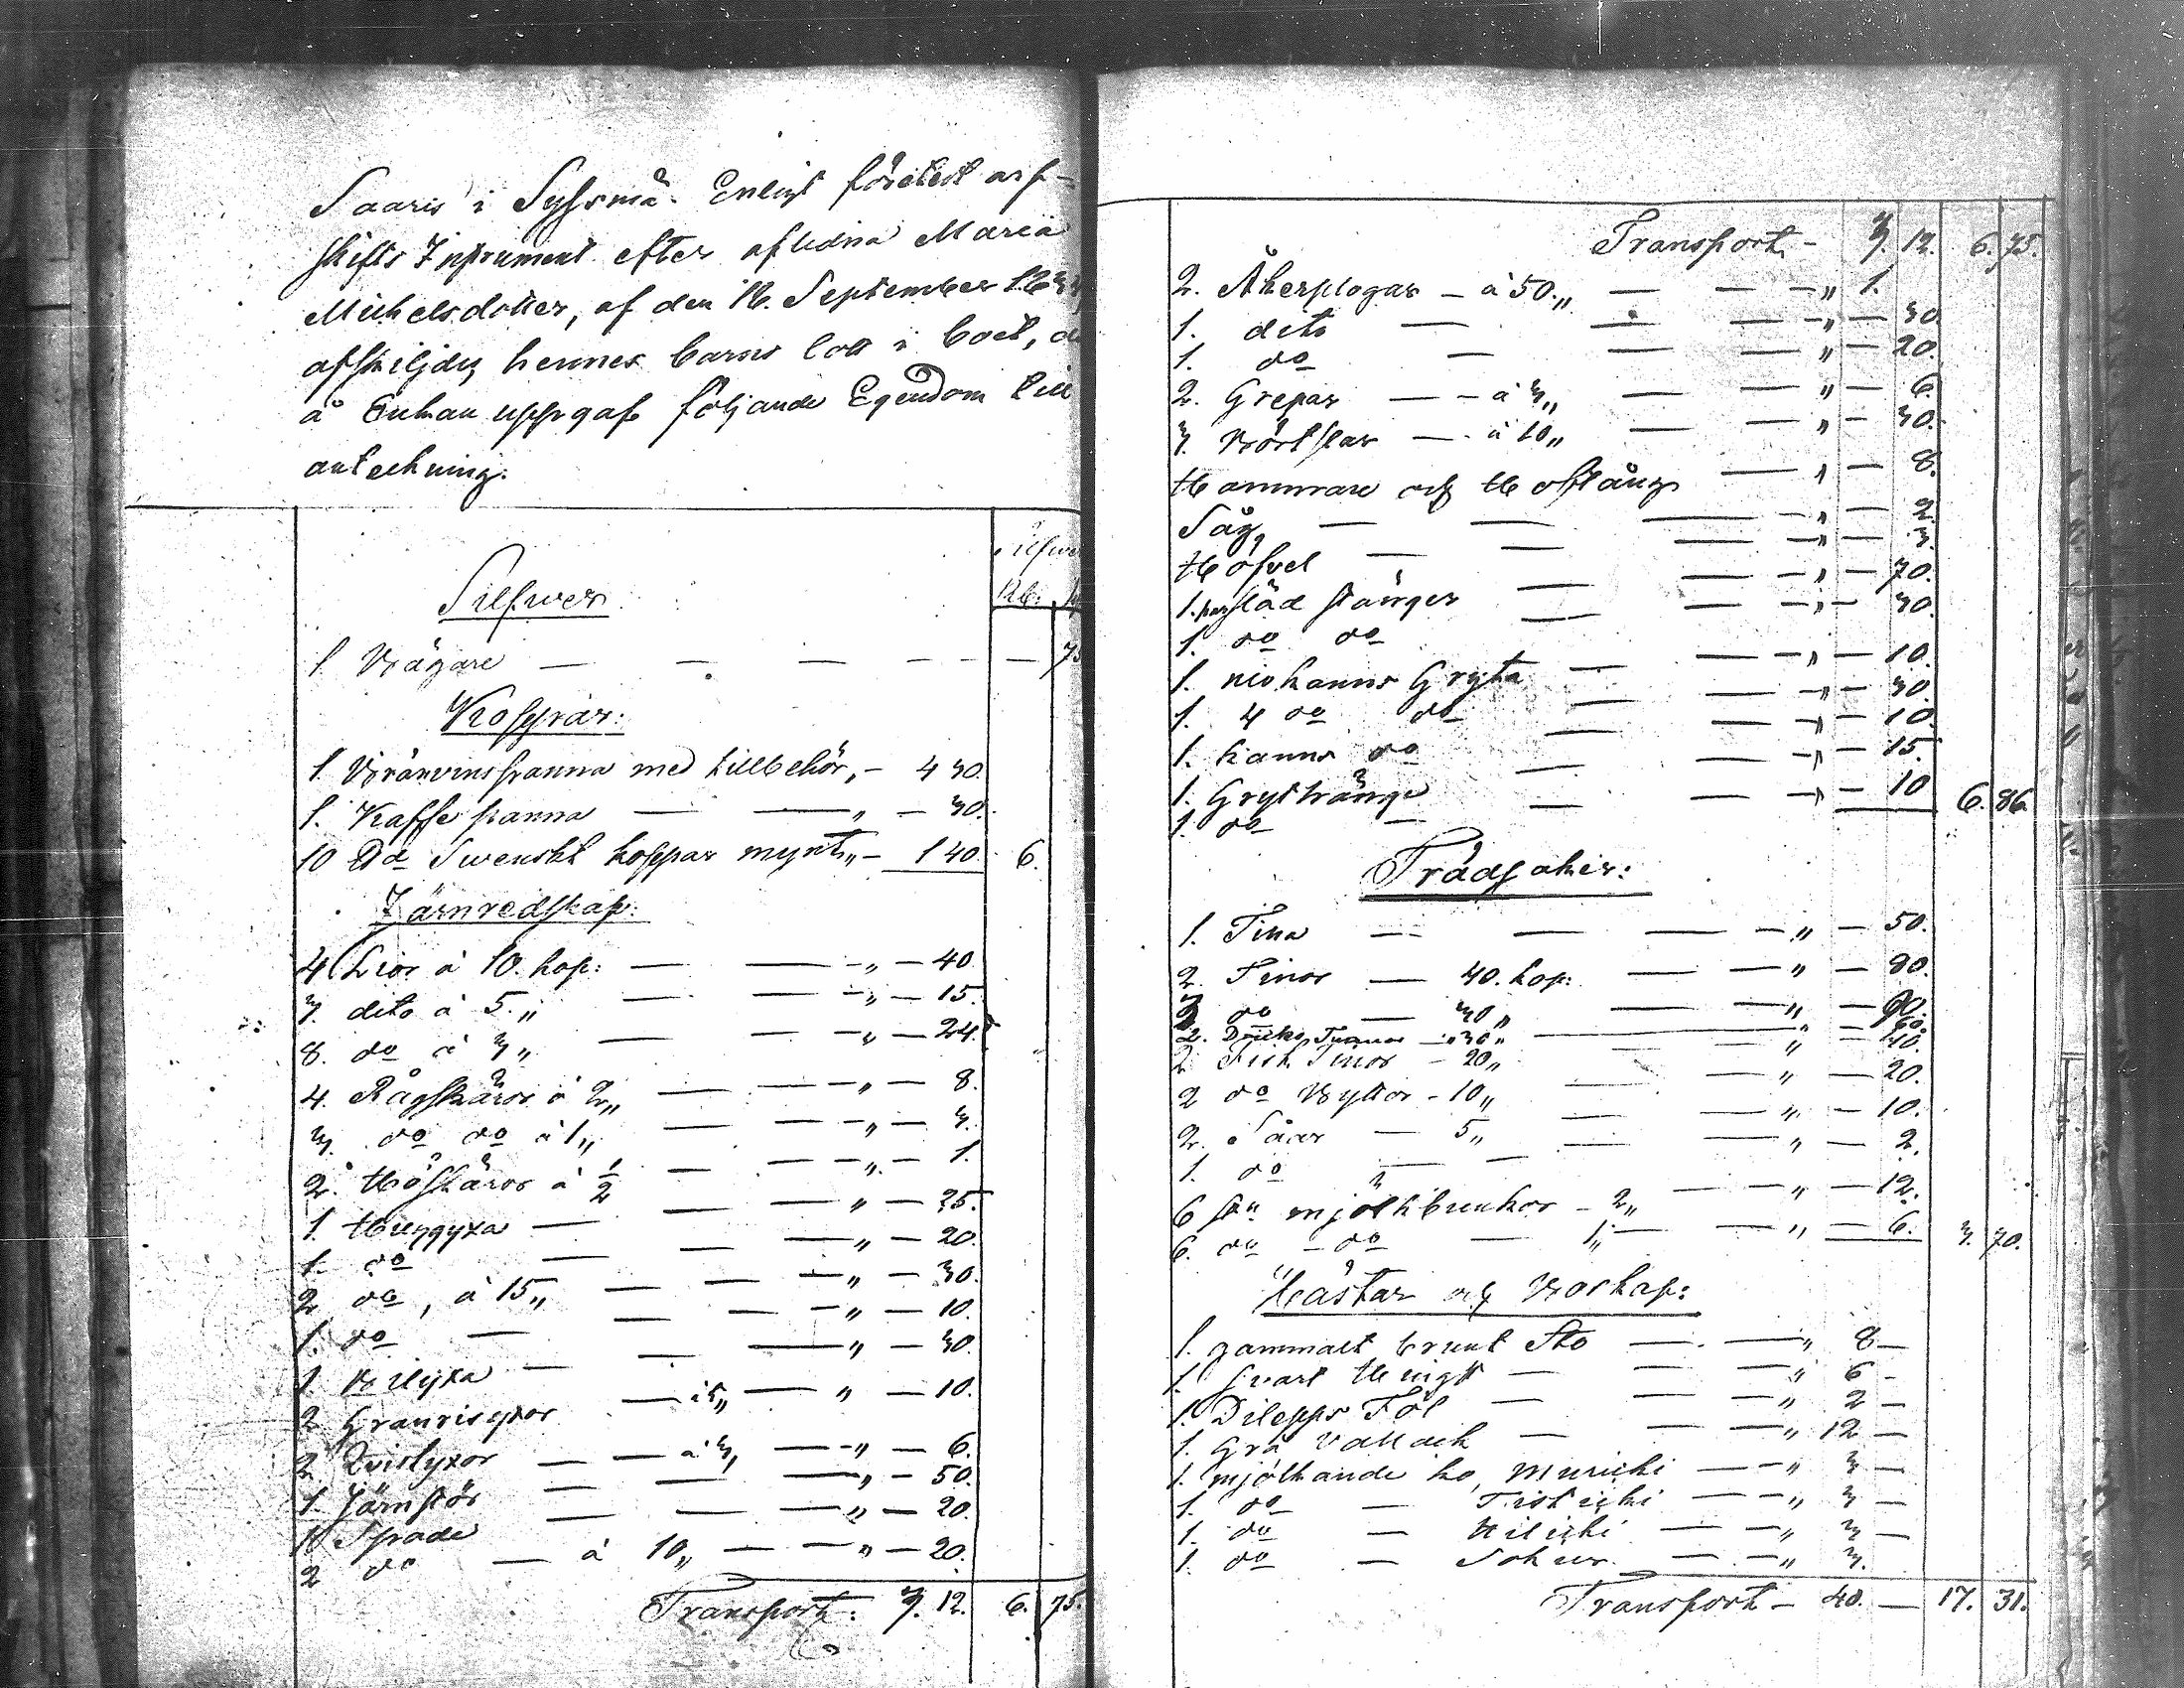 Saaris i Sysmä. Enligt företedt arf-
skifts Instrument efter aflidna Maria
Michelsdotter, af den 16. September
afskiljdes hennes barns lott i boet,
å Enkan uppgaf följande Egendom till
anteckning.
Silfwer
Rb.
Silfwer
1 Bägare — — — — — 75
Koppar:
1 Brännvinspanna med tillbehör, - 4 30.
1. Kaffepanna — — „ — 30.
10 Dd Swenskt koppar mynt „ - 1 40. 6.
Järnredskap:
4 Liar à 10. kop: — — „ — 40
3. dito à 5. „ — — „ — 15.
8. do à 3 „ — — „ — 24.
4. Rågskäror à 2 „ — — „ — 8.
3. do do à 1 „ — — „ — 3.
2. Höskäror à 1/2 — — „ — 1.
1. Huggyxa — — — „ — 25.
1. do — — — „ — 20.
2 do, à 15 „ — — „ — 30.
1. do — — — „ — 10.
1. Bilyxa — — — „ — 30.
2 Granrisyxor — à 5 „ — „ — 10.
2 Qvistyxor — — à 3 „ — „ — 6.
1. Järnstör — — — „ — 50.
1 Spade — — — „ — 20.
2 do — à 10 „ — — „ — 20.
Transport: 3. 12. 6. 75.
Transport - 3. 12. 6. 75.
2. Åkerplogar — à 50. „ — — „ 1.
1. dito — — — „ — 30.
1. do — — — „ — 20.
2. Grepar — — à 3 „ — — „ — 6.
3. Bårstar — à 10 „ — — „ — 30.
Hammare och Hoftång — „ — 8.
Såg, — — — „ — 2.
Höfvel — — — „ — 3.
1. par släd stänger — — „ — 70.
1. do do — — „ — 30.
1. nio kanns Gryta — — „ — 10.
1. 4 do do — — „ — 30.
1. kanns do — — „ — 10.
1. Grythänge — — „ — 15.
1. do — — — „ — 10 6. 86.
Trädsaker:
1. Tina — — — — „ — 50.
2. Tinor — 40. kop: — — „ — 80.
3 do — 30 „ — — „ — 90.
2. Dricks Tunnor — „ 30 „ — „ — 60.
2 Fisk Tinor — 20 „ — „ — 40.
2 do Byttor - 10 „ — — „ — 20.
2. Såar — 5 „ — — „ — 10.
1. do — — — „ — 2.
6 st. mjölkbunkor - 2 „ — — „ — 12.
6. do - do — 1 „ — — „ — 6. 3. 70.
Hästar och Boskap:
1. gammalt brunt Sto — — „ 8 —
1. svart Hingst — — — „ 6 -
1. Dilepps Föl — — — „ 2 —
1. Grå Vallack — — — „ 12 —
1. mjölkande ko, Muricki — — „ 3 —
1. do — Tisticki — — „ 3 —
1. do — Hilicki — — „ 3 —
1. do — — — „ 3.
Transport - 40. — 17. 31.